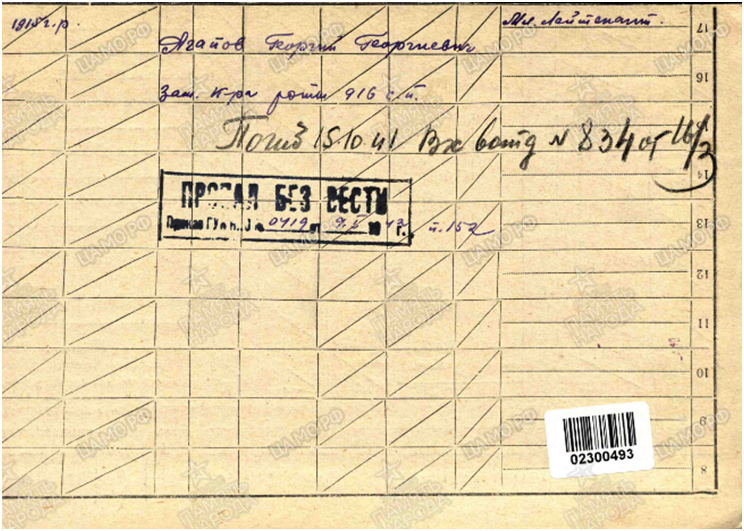 1915 г.р. Мл. Лейтенант.
Агапов Георгий Георгиевич
Зам. к-ра роты 916 с.п.
Погиб 15 10 41 Вх N 834 от 16/3
ПРОПАЛ БЕЗ ВЕСТИ
Приказ ГУК НКО № 0419 от 9.5 1943 г. п. 152
17
16
14
13
12
11
10
9
8
02300493
ЦАМО.РФ
ПАМЯТЬ НАРОДА